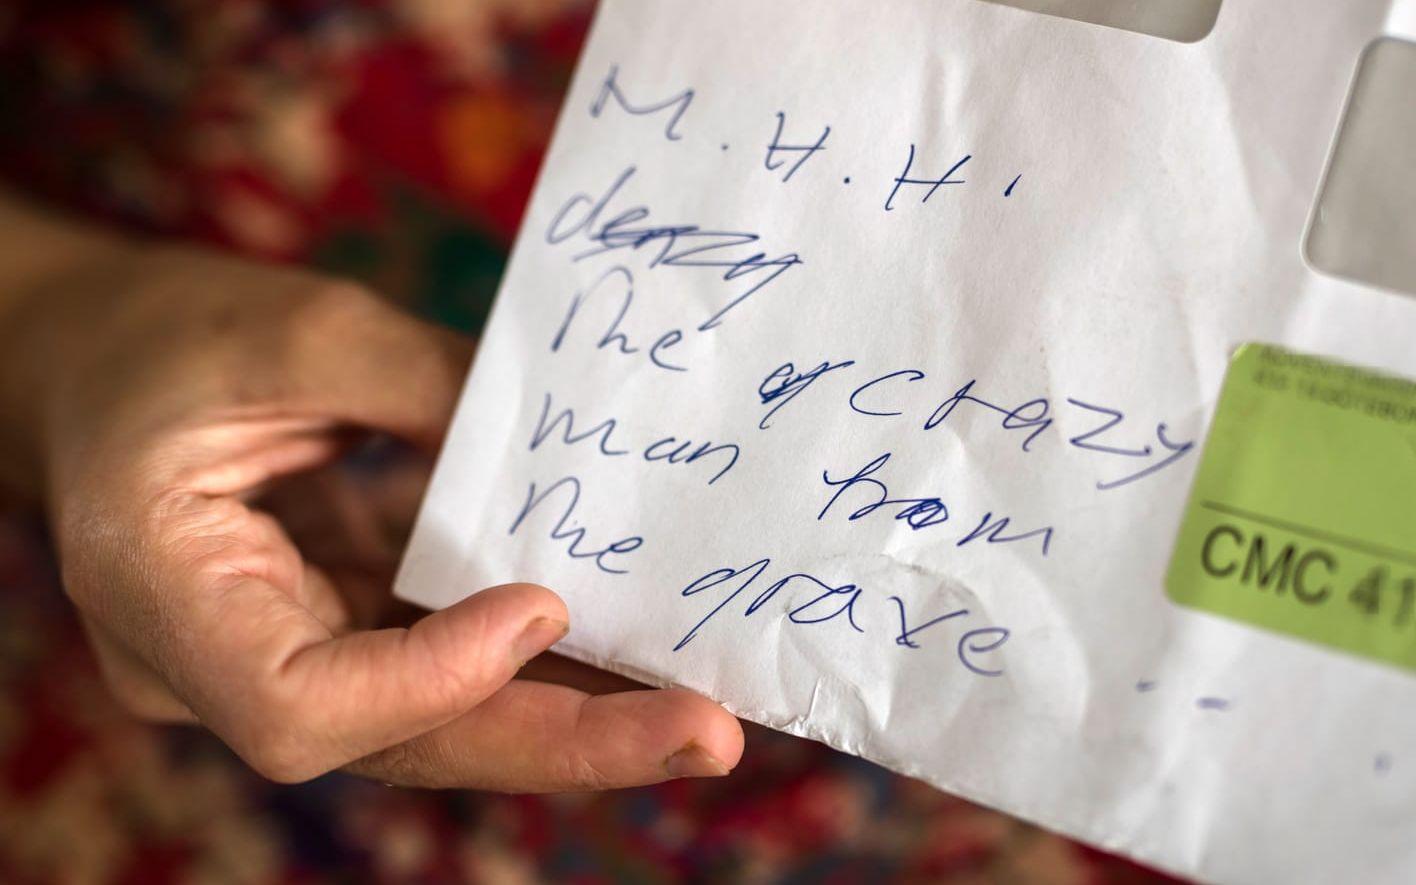 M. H. H.
The crazy
man from
the grave --
CMC 41